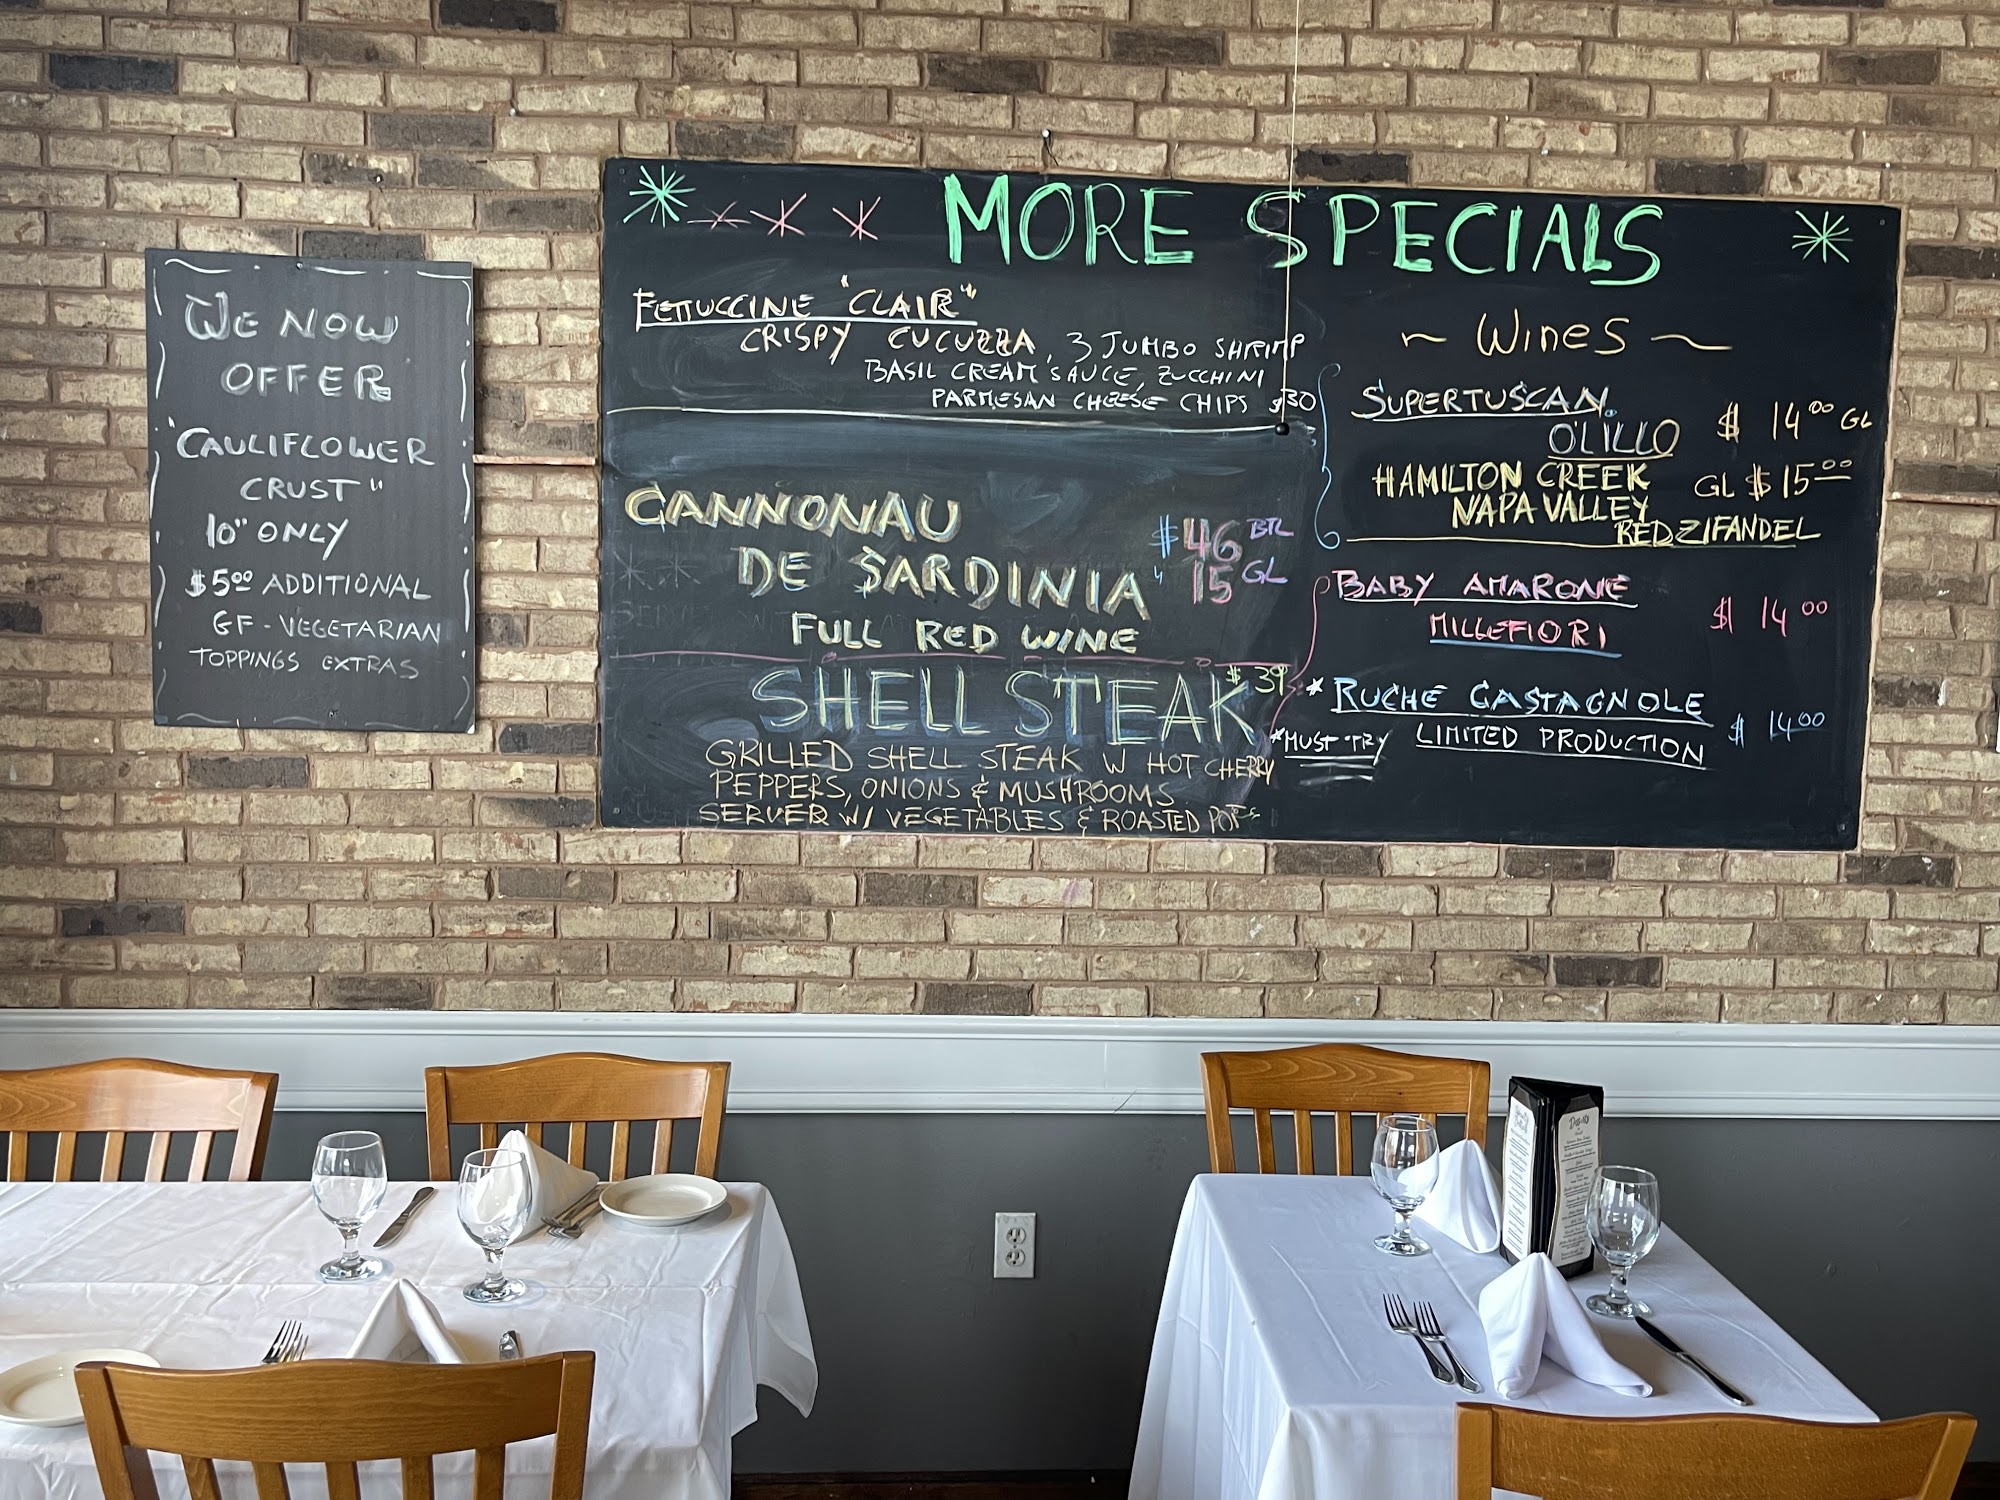 WE NOW
OFFER
"CAULIFLOWER
CRUST"
10" ONLY
$5.00 ADDITIONAL
GF - VEGETARIAN
TOPPINGS EXTRAS
MORE SPECIALS
FETTUCCINE "CLAIR"
CRISPY CUCUZZA, 3 JUMBO SHRIMP
BASIL CREAM SAUCE, ZUCCHINI
PARMESAN CHEESE CHIPS $30
CANNONAU
DE SARDINIA
FULL RED WINE
$46 BTL
15 GL
SHELL STEAK $39
GRILLED SHELL STEAK W HOT CHERRY
PEPPERS, ONIONS & MUSHROOMS
SERVED W/ VEGETABLES & ROASTED POT
~ WINES ~
SUPERTUSCAN.
OLILLO
$ 14.00 GL
HAMILTON CREEK
NAPA VALLEY
GL $15.00
RED ZIFANDEL
BABY AMARONE
MILLEFIORI
$ 14.00
* RUCHE CASTAGNOLE
LIMITED PRODUCTION
$ 14.00
*MUST TRY
Desserts